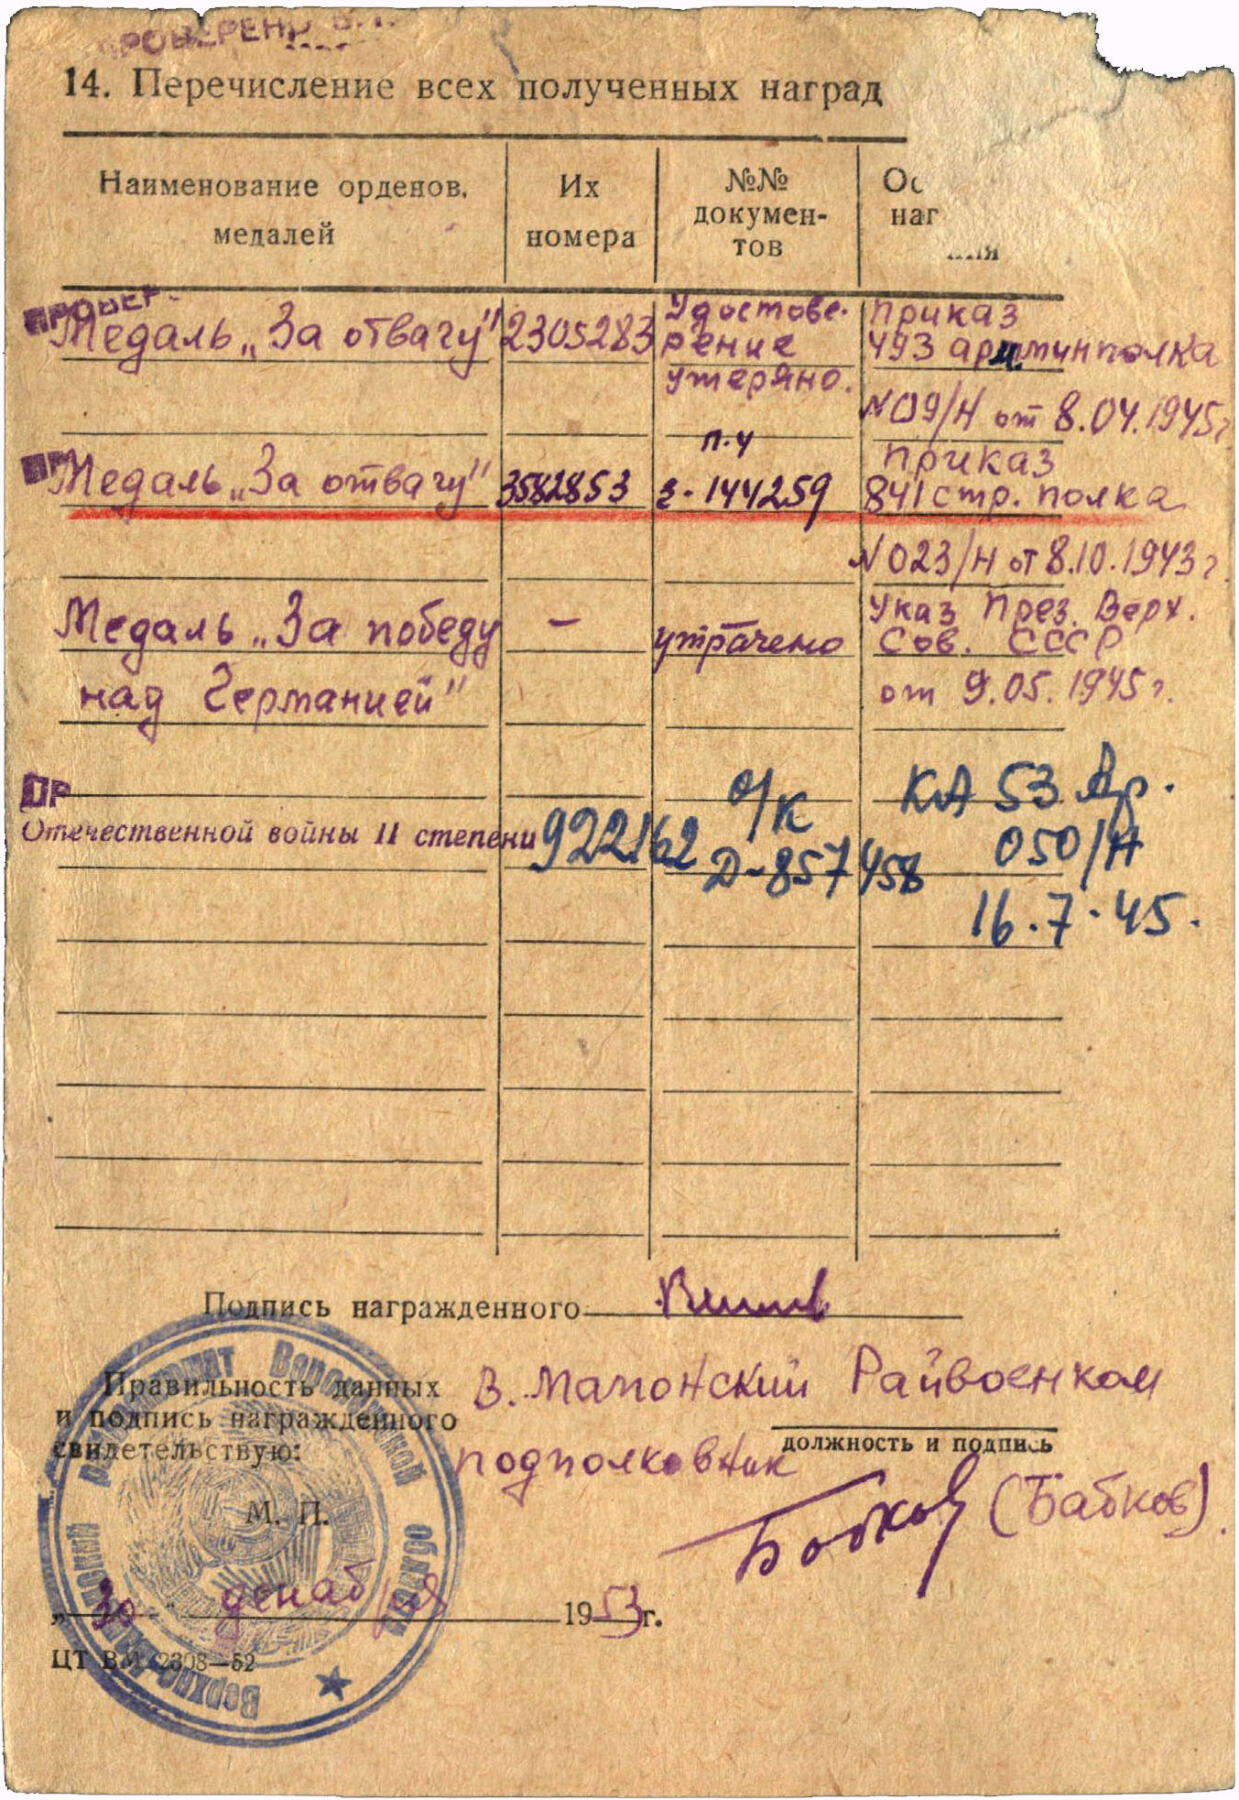 ПРОВЕРЕНО
14. Перечисление всех полученных наград
Наименование орденов, медалей
Их номера
№№ докумен-
тов
Ос
наг
ния
ПРОВЕР.
Медаль „За отвагу"
2305283
Удостове-
рение
утеряно.
Приказ
493 арт.мин полка
N 09/Н от 8.04.1945г
ПР
Медаль „За отвагу"
3582853
п.у
з-144259
Приказ
841 стр. полка
N 023/Н от 8.10.1943г
Медаль „За победу
над Германией"
–
утрачено
Указ През. Верх.
Сов. СССР
от 9.05.1945г.
ОР
Отечественной войны II степени
922162
о/к
Д-857458
КА 53 Ар.
050/Н
16.7.45.
Подпись награжденного
Правильность данных
и подпись награжденного
свидетельствую:
М. П.
В. Мамонский Райвоенком
должность и подпись
подполковник
Бабков (Бабков)
„30" декабря 1953г.
ЦТ ВМ 2308—52